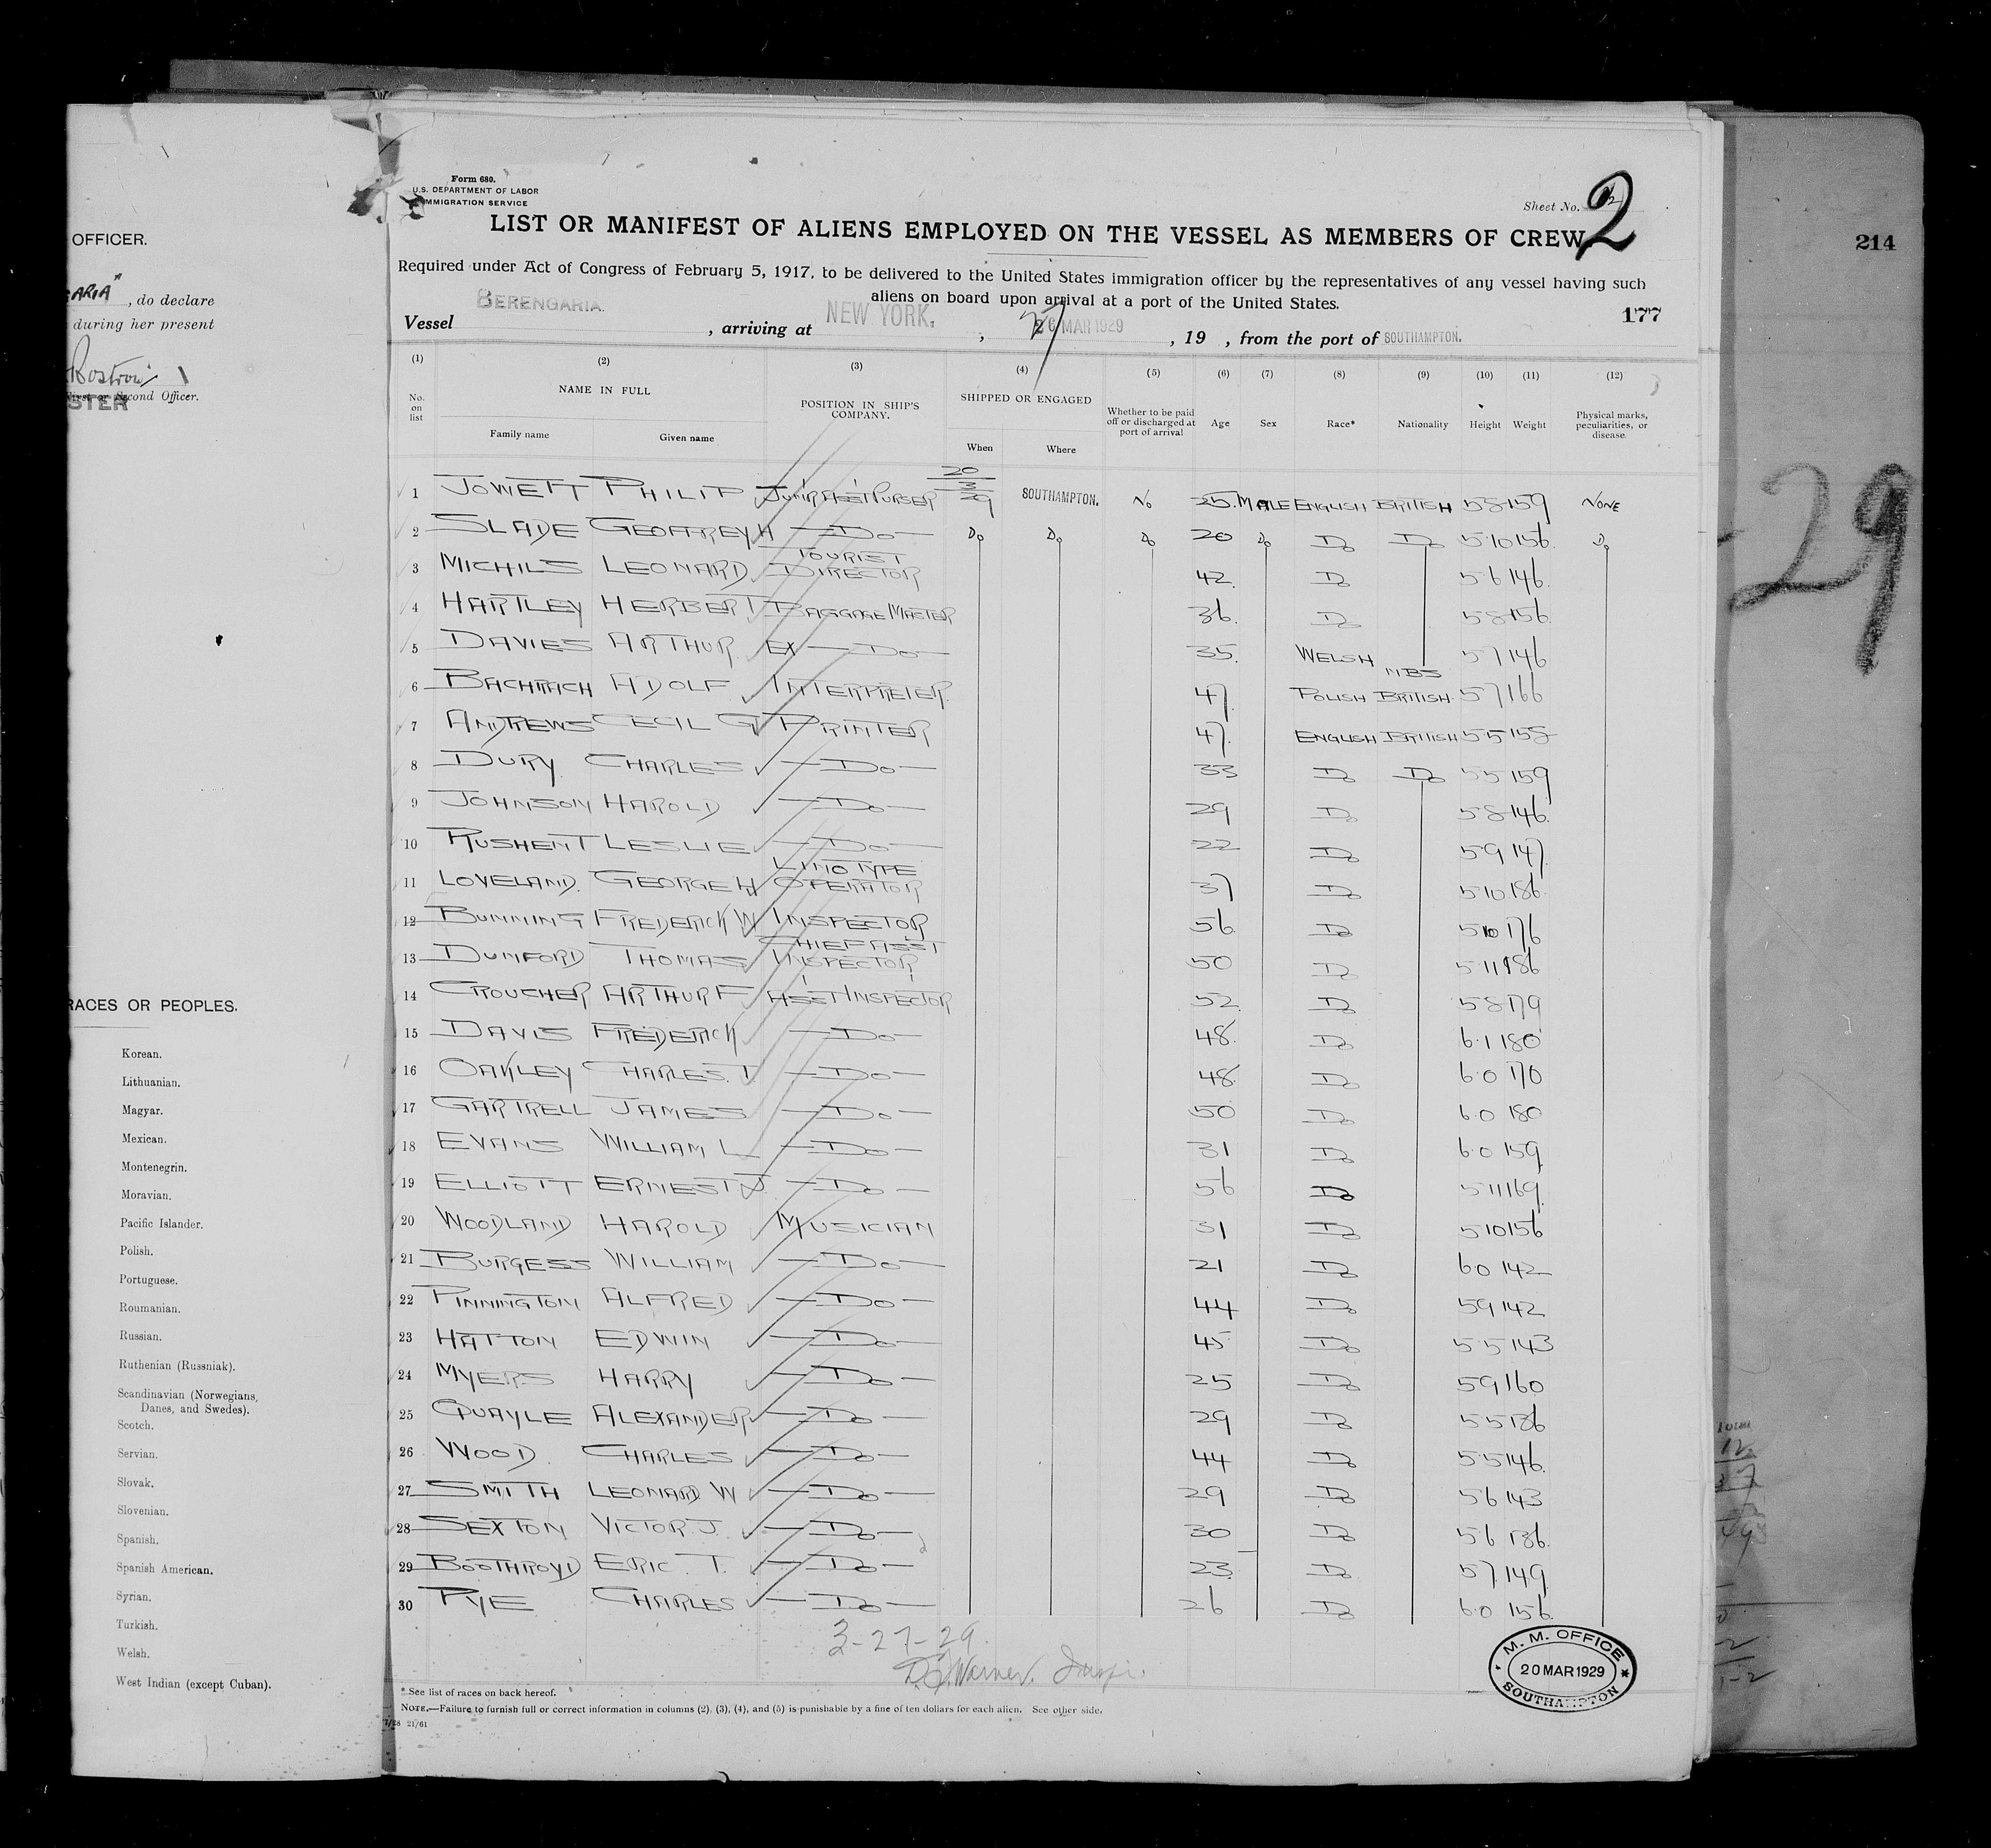 OFFICER.
GARIA" , do declare
during her present
Rostron
First or Second Officer.
STER
RACES OR PEOPLES.
Korean.
Lithuanian.
Magyar.
Mexican.
Montenegrin.
Moravian.
Pacific Islander.
Polish.
Portuguese.
Roumanian.
Russian.
Ruthenian (Russniak).
Scandinavian (Norwegians,
Danes, and Swedes).
Scotch.
Servian.
Slovak.
Slovenian.
Spanish.
Spanish American.
Syrian.
Turkish.
Welsh.
West Indian (except Cuban).
Form 680.
U.S. DEPARTMENT OF LABOR
IMMIGRATION SERVICE
Sheet No. 2
LIST OR MANIFEST OF ALIENS EMPLOYED ON THE VESSEL AS MEMBERS OF CREW
Required under Act of Congress of February 5, 1917, to be delivered to the United States immigration officer by the representatives of any vessel having such
aliens on board upon arrival at a port of the United States.
177
Vessel BERENGARIA. , arriving at NEW YORK. , 26 MAR 1929 , 19 , from the port of SOUTHAMPTON.
(1) (2) (3) (4) (5) (6) (7) (8) (9) (10) (11) (12)
No. on list NAME IN FULL POSITION IN SHIP'S COMPANY. SHIPPED OR ENGAGED Whether to be paid off or discharged at port of arrival Age Sex Race* Nationality Height Weight Physical marks, peculiarities, or disease.
Family name Given name When Where
1 JOWETT PHILIP JUNR ASST PURSER 20/3/29 SOUTHAMPTON. No 25. MALE ENGLISH BRITISH 5 8 159 NONE
2 SLADE GEOFFREY H — Do — Do Do Do 20 Do Do Do 5 10 156. Do
3 MICHILS LEONARD TOURIST DIRECTOR 42. Do 5 6 146.
4 HARTLEY HERBERT BAGGAGE MASTER 36. Do 5 8 156.
5 DAVIES ARTHUR EX — Do — 35. WELSH 5 7 146
6 BACHRACH ADOLF INTERPRETER. 47. POLISH NBS BRITISH. 5 7 166
7 ANDREWS CECIL G PRINTER 47. ENGLISH BRITISH 5 5 155
8 DURY. CHARLES — Do — 33 Do Do 5 5 159
9 JOHNSON HAROLD — Do — 29 Do 5 8 146.
10 RUSHENT LESLIE — Do — 22 Do 5 9 147.
11 LOVELAND. GEORGE H LINOTYPE OPERATOR 37 Do 5 10 186.
12 BUNNING FREDERICK W INSPECTOR 56 Do 5 10 176
13 DUMFORD THOMAS CHIEF ASST INSPECTOR 50 Do 5 11 186
14 CROUCHER ARTHUR F ASST INSPECTOR 52 Do 5 8 179
15 DAVIS FREDERICK — Do — 48. Do 6.1 180
16 OAKLEY CHARLES. T. — Do — 48. Do 6.0 170
17 GARTRELL JAMES — Do — 50 Do 6.0 180
18 EVANS WILLIAM L — Do — 31 Do 6.0 159.
19 ELLIOTT ERNEST J. — Do — 56 Do 5 11 169.
20 WOODLAND HAROLD MUSICIAN 31 Do 5 10 156
21 BURGESS WILLIAM — Do — 21 Do 6 0 142
22 PINNINGTON ALFRED — Do — 44 Do 5 9 142
23 HATTON EDWIN — Do — 45 Do 5 5 143
24 MYERS HARRY — Do — 25 Do 5 9 160
25 QUAYLE ALEXANDER — Do — 29 Do 5 5 136
26 WOOD. CHARLES — Do — 44 Do 5 5 146.
27 SMITH LEONARD W — Do — 29 Do 5 6 143
28 SEXTON VICTOR J. — Do — 30 Do 5 6 136.
29 BOOTHROYD ERIC. T. — Do — 23. Do 5 7 149.
30 PYE CHARLES — Do — 26 Do 6.0 156.
3-27-29.
Warner. Insp.
M. M. OFFICE
20 MAR 1929
SOUTHAMPTON
* See list of races on back hereof.
NOTE.—Failure to furnish full or correct information in columns (2), (3), (4), and (5) is punishable by a fine of ten dollars for each alien. See other side.
7/28 21/61
214
29
Total
12
37